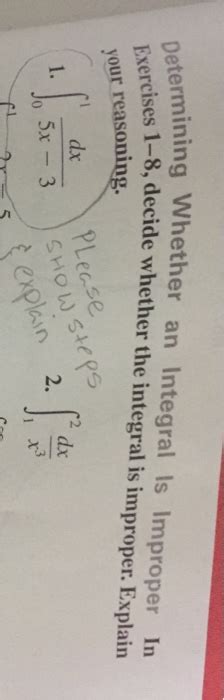 Determining Whether an Integral Is Improper In
Exercises 1–8, decide whether the integral is improper. Explain
your reasoning.
1. ∫₀¹ dx / (5x − 3)
2. ∫₁² dx / x³
PLease
SHOW steps
& explain